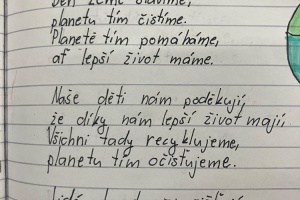 Den Země slavíme,
planetu tím čistíme.
Planetě tím pomáháme,
ať lepší život máme.
Naše děti nám poděkují,
že díky nám lepší život mají,
Všichni tady recyklujeme,
planetu tím očisťujeme.